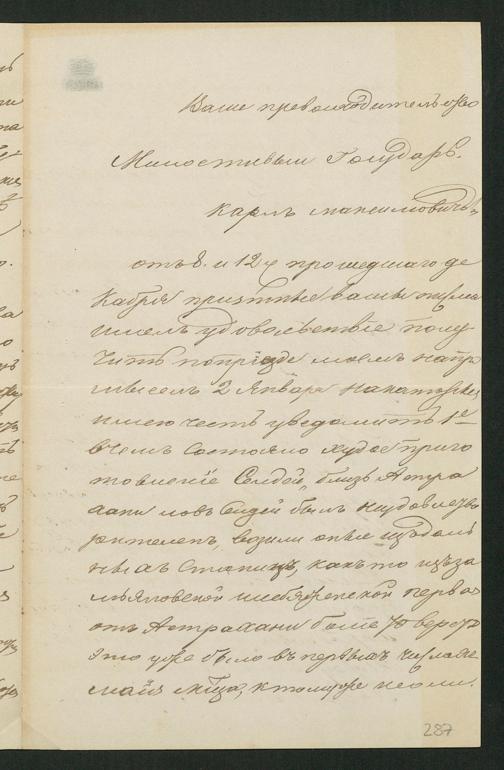 Ваше превосходительство
Милостивый Государь.
Карлъ Максимовичъ,
отъ 8. и 12 ч прошедшаго де
кабря приятнѣе ваши письма
имелъ удовольствіе полу
чить поприезде моемъ на про
мыселъ 2 января на которые
имею честь уведомить 1е
вчемъ состояло худое приго
товленіе Селдей, близь Астра
хани ловъ Селдей былъ неудовлетво
рителенъ, возили оные издаль
ныхъ Станицъ, какъ то изъ за
первая
отъ Астрахани более 70 верстъ
это уже было въ первыхъ числахъ
майя мѣца, ктомуже
287